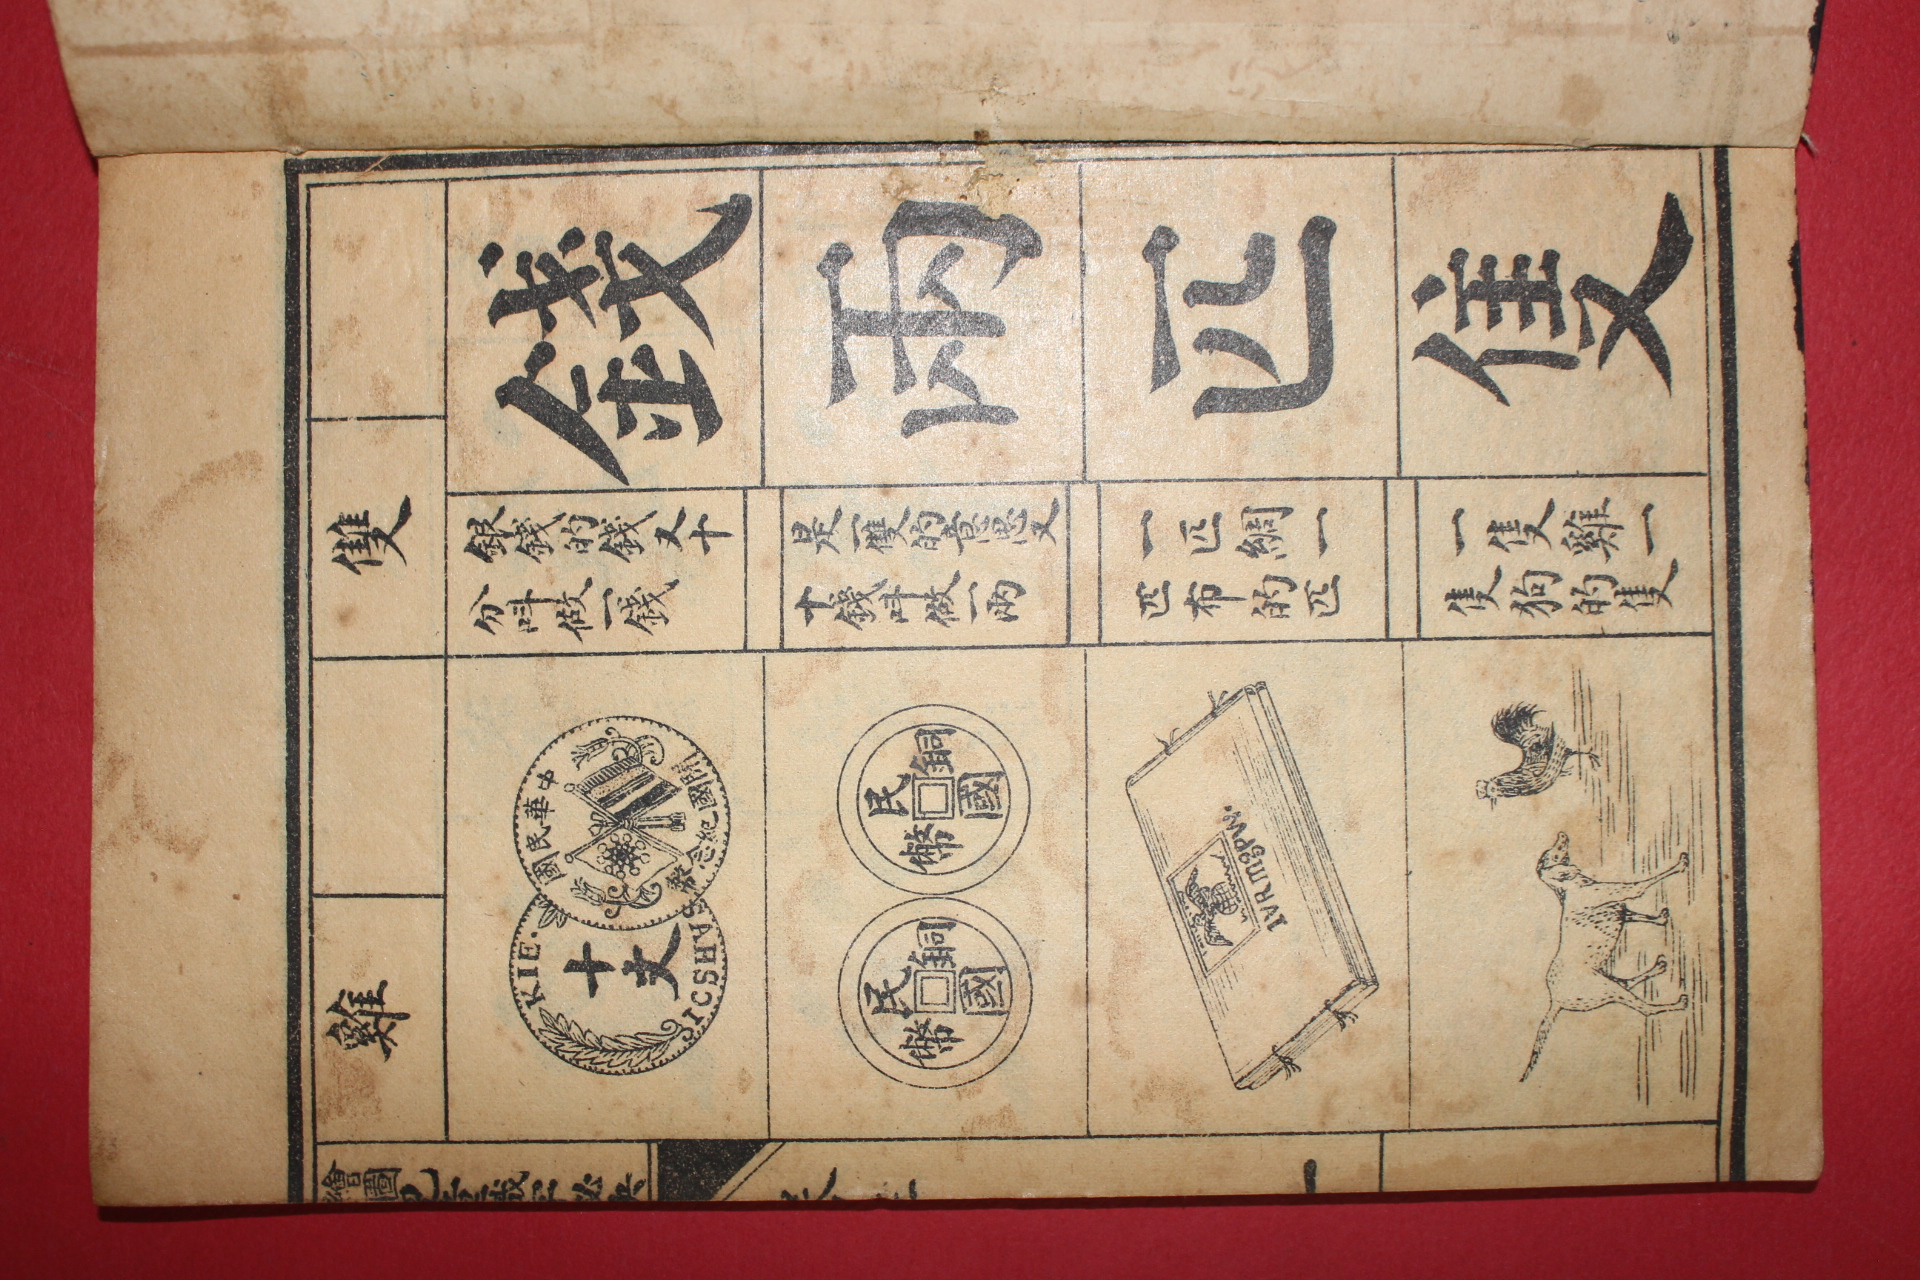 隻
雞
錢
銀錢的錢又十
分叫做一錢
兩
是一隻的意思又
十錢叫做一兩
匹
一匹綢一
匹布的匹
隻
一隻雞一
隻狗的隻
中華民國
開國紀念幣
十文
KIE.
JICSHVS
民國銅幣
民國銅幣
IVRmgPW.
繪圖
一